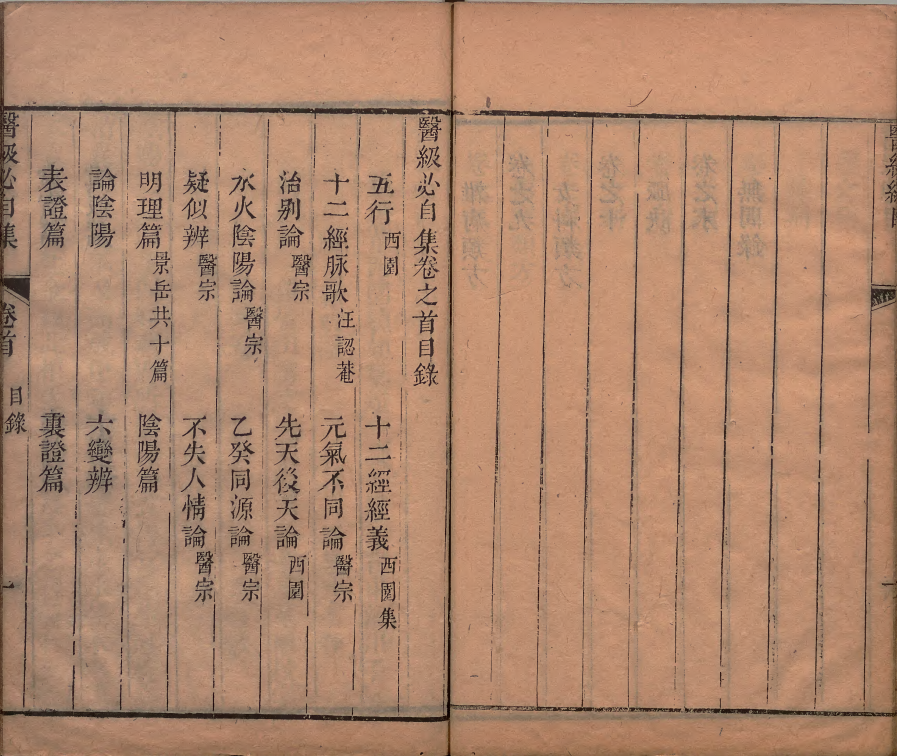 醫級必自集卷之首目錄
五行 西園 十二經經義 西園集
十二經脉歌 汪認菴 元氣不同論 醫宗
治别論 醫宗 先天後天論 西園
水火陰陽論 醫宗 乙癸同源論 醫宗
疑似辨 醫宗 不失人情論 醫宗
明理篇 景岳共十篇 陰陽篇
論陰陽 六變辨
表證篇 裏證篇
醫級必自集 卷首 目錄 一